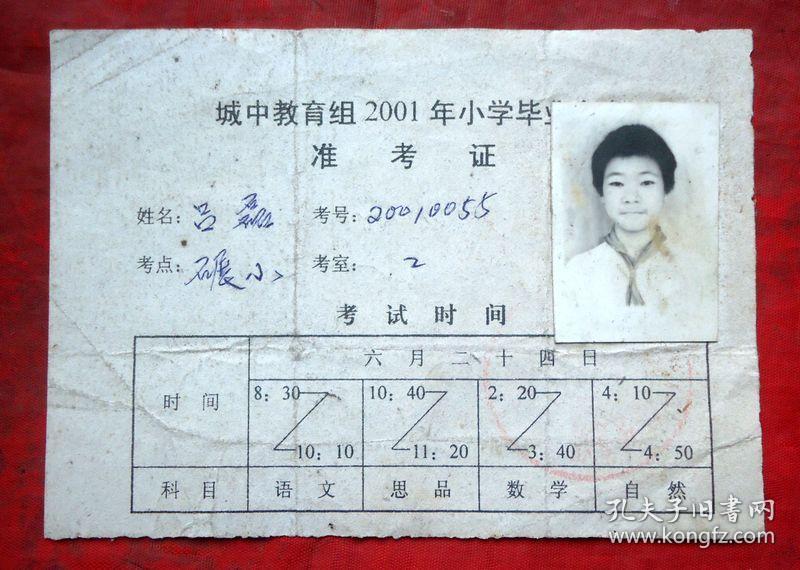 城中教育组 2001 年小学毕业
准 考 证
姓名：吕磊 考号：20010055
考点：碾小 考室：2
考 试 时 间
六 月 二 十 四 日
时 间 8：30 10：10 10：40 11：20 2：20 3：40 4：10 4：50
科 目 语 文 思 品 数 学 自 然
孔夫子旧书网
www.kongfz.com